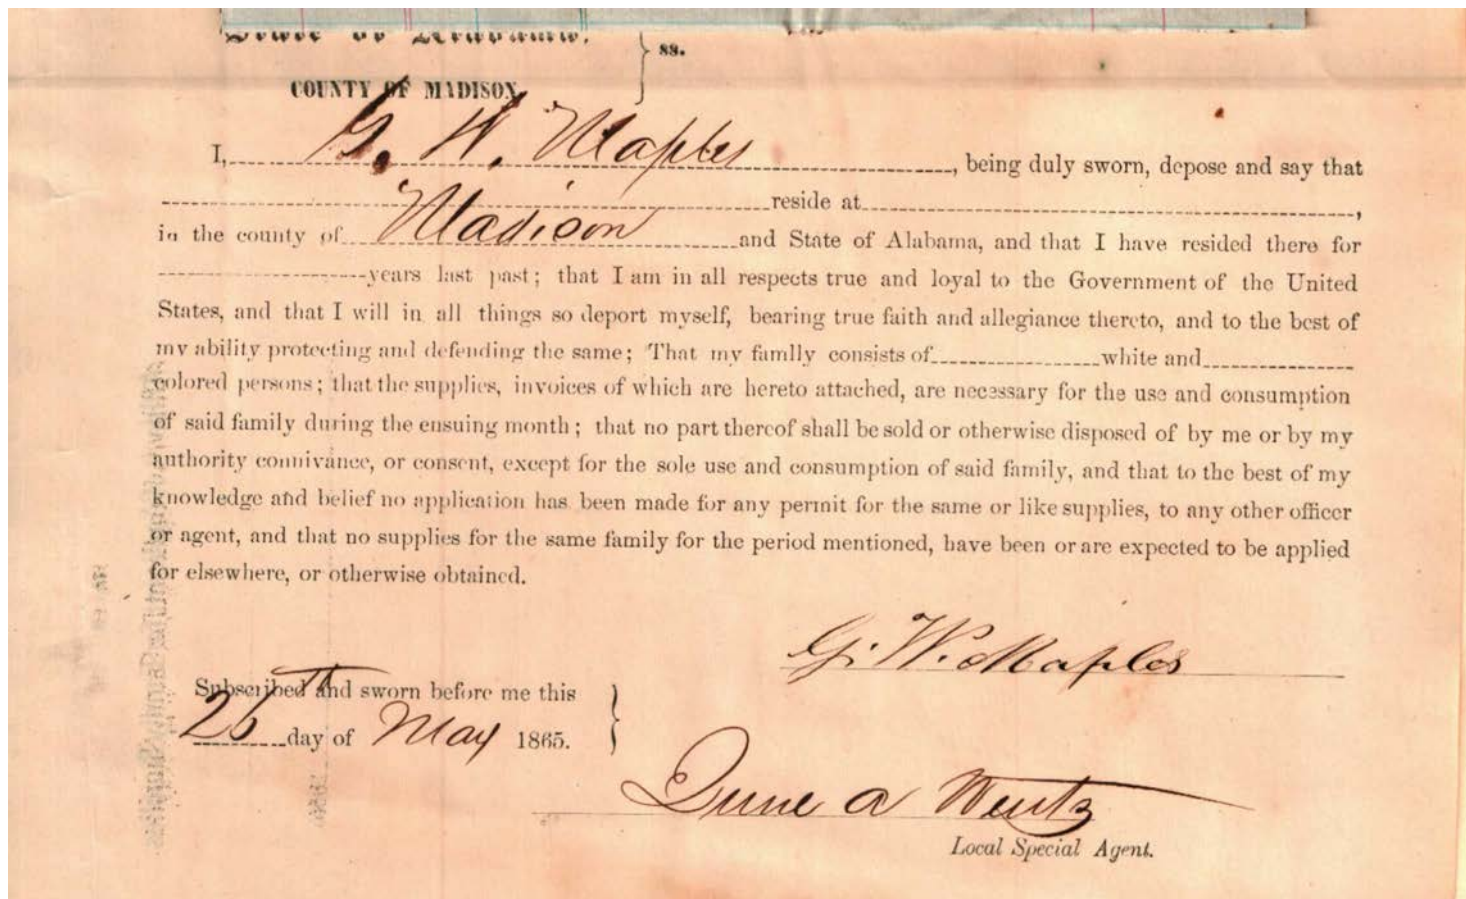 State of Alabama, } ss.
COUNTY OF MADISON,
I, G. W. Maples, being duly sworn, depose and say that
reside at,
in the county of Madison and State of Alabama, and that I have resided there for
years last past; that I am in all respects true and loyal to the Government of the United
States, and that I will in all things so deport myself, bearing true faith and allegiance thereto, and to the best of
my ability protecting and defending the same; That my famlly consists of white and
colored persons; that the supplies, invoices of which are hereto attached, are necessary for the use and consumption
of said family during the ensuing month; that no part thereof shall be sold or otherwise disposed of by me or by my
authority connivance, or consent, except for the sole use and consumption of said family, and that to the best of my
knowledge and belief no application has been made for any permit for the same or like supplies, to any other officer
or agent, and that no supplies for the same family for the period mentioned, have been or are expected to be applied
for elsewhere, or otherwise obtained.
G. W. Maples
Subscribed and sworn before me this
day of May 1865.
a Wentz
Local Special Agent.